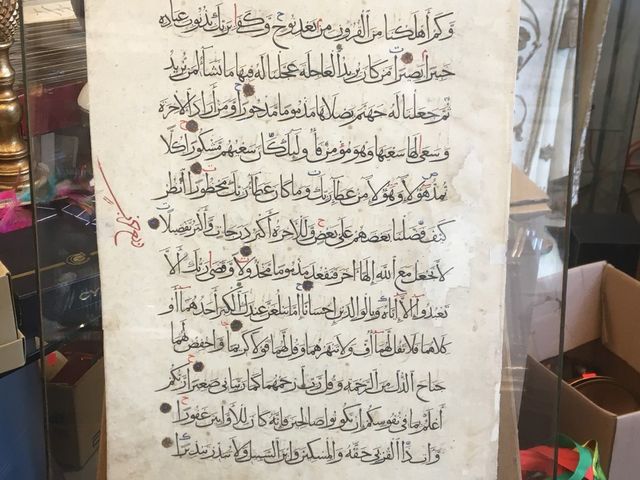 وكم أهلكنا من القرون من بعد نوح وكفى بربك بذنوب عباده
خبيرا بصيرا من كان يريد العاجلة عجلنا له فيها ما نشاء لمن نريد
ثم جعلنا له جهنم يصلاها مذموما مدحورا ومن أراد الآخرة
وسعى لها سعيها وهو مؤمن فأولئك كان سعيهم مشكورا كلا
نمد هؤلاء وهؤلاء من عطاء ربك وما كان عطاء ربك محظورا انظر
كيف فضلنا بعضهم على بعض وللآخرة أكبر درجات وأكبر تفضيلا
لا تجعل مع الله إلها آخر فتقعد مذموما مخذولا وقضى ربك ألا
تعبدوا إلا إياه وبالوالدين إحسانا إما يبلغن عندك الكبر أحدهما أو
كلاهما فلا تقل لهما أف ولا تنهرهما وقل لهما قولا كريما واخفض لهما
جناح الذل من الرحمة وقل رب ارحمهما كما ربياني صغيرا ربكم
أعلم بما في نفوسكم إن تكونوا صالحين فإنه كان للأوابين غفورا
وآت ذا القربى حقه والمسكين وابن السبيل ولا تبذر تبذيرا